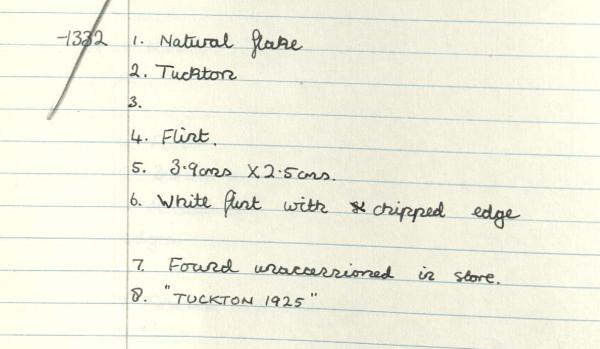 -1332 1. Natural flake
2. Tuckton
3.
4. Flint.
5. 3.9cms X 2.5cms.
6. White flint with chipped edge
7. Found unaccessioned in store.
8. "TUCKTON 1925"